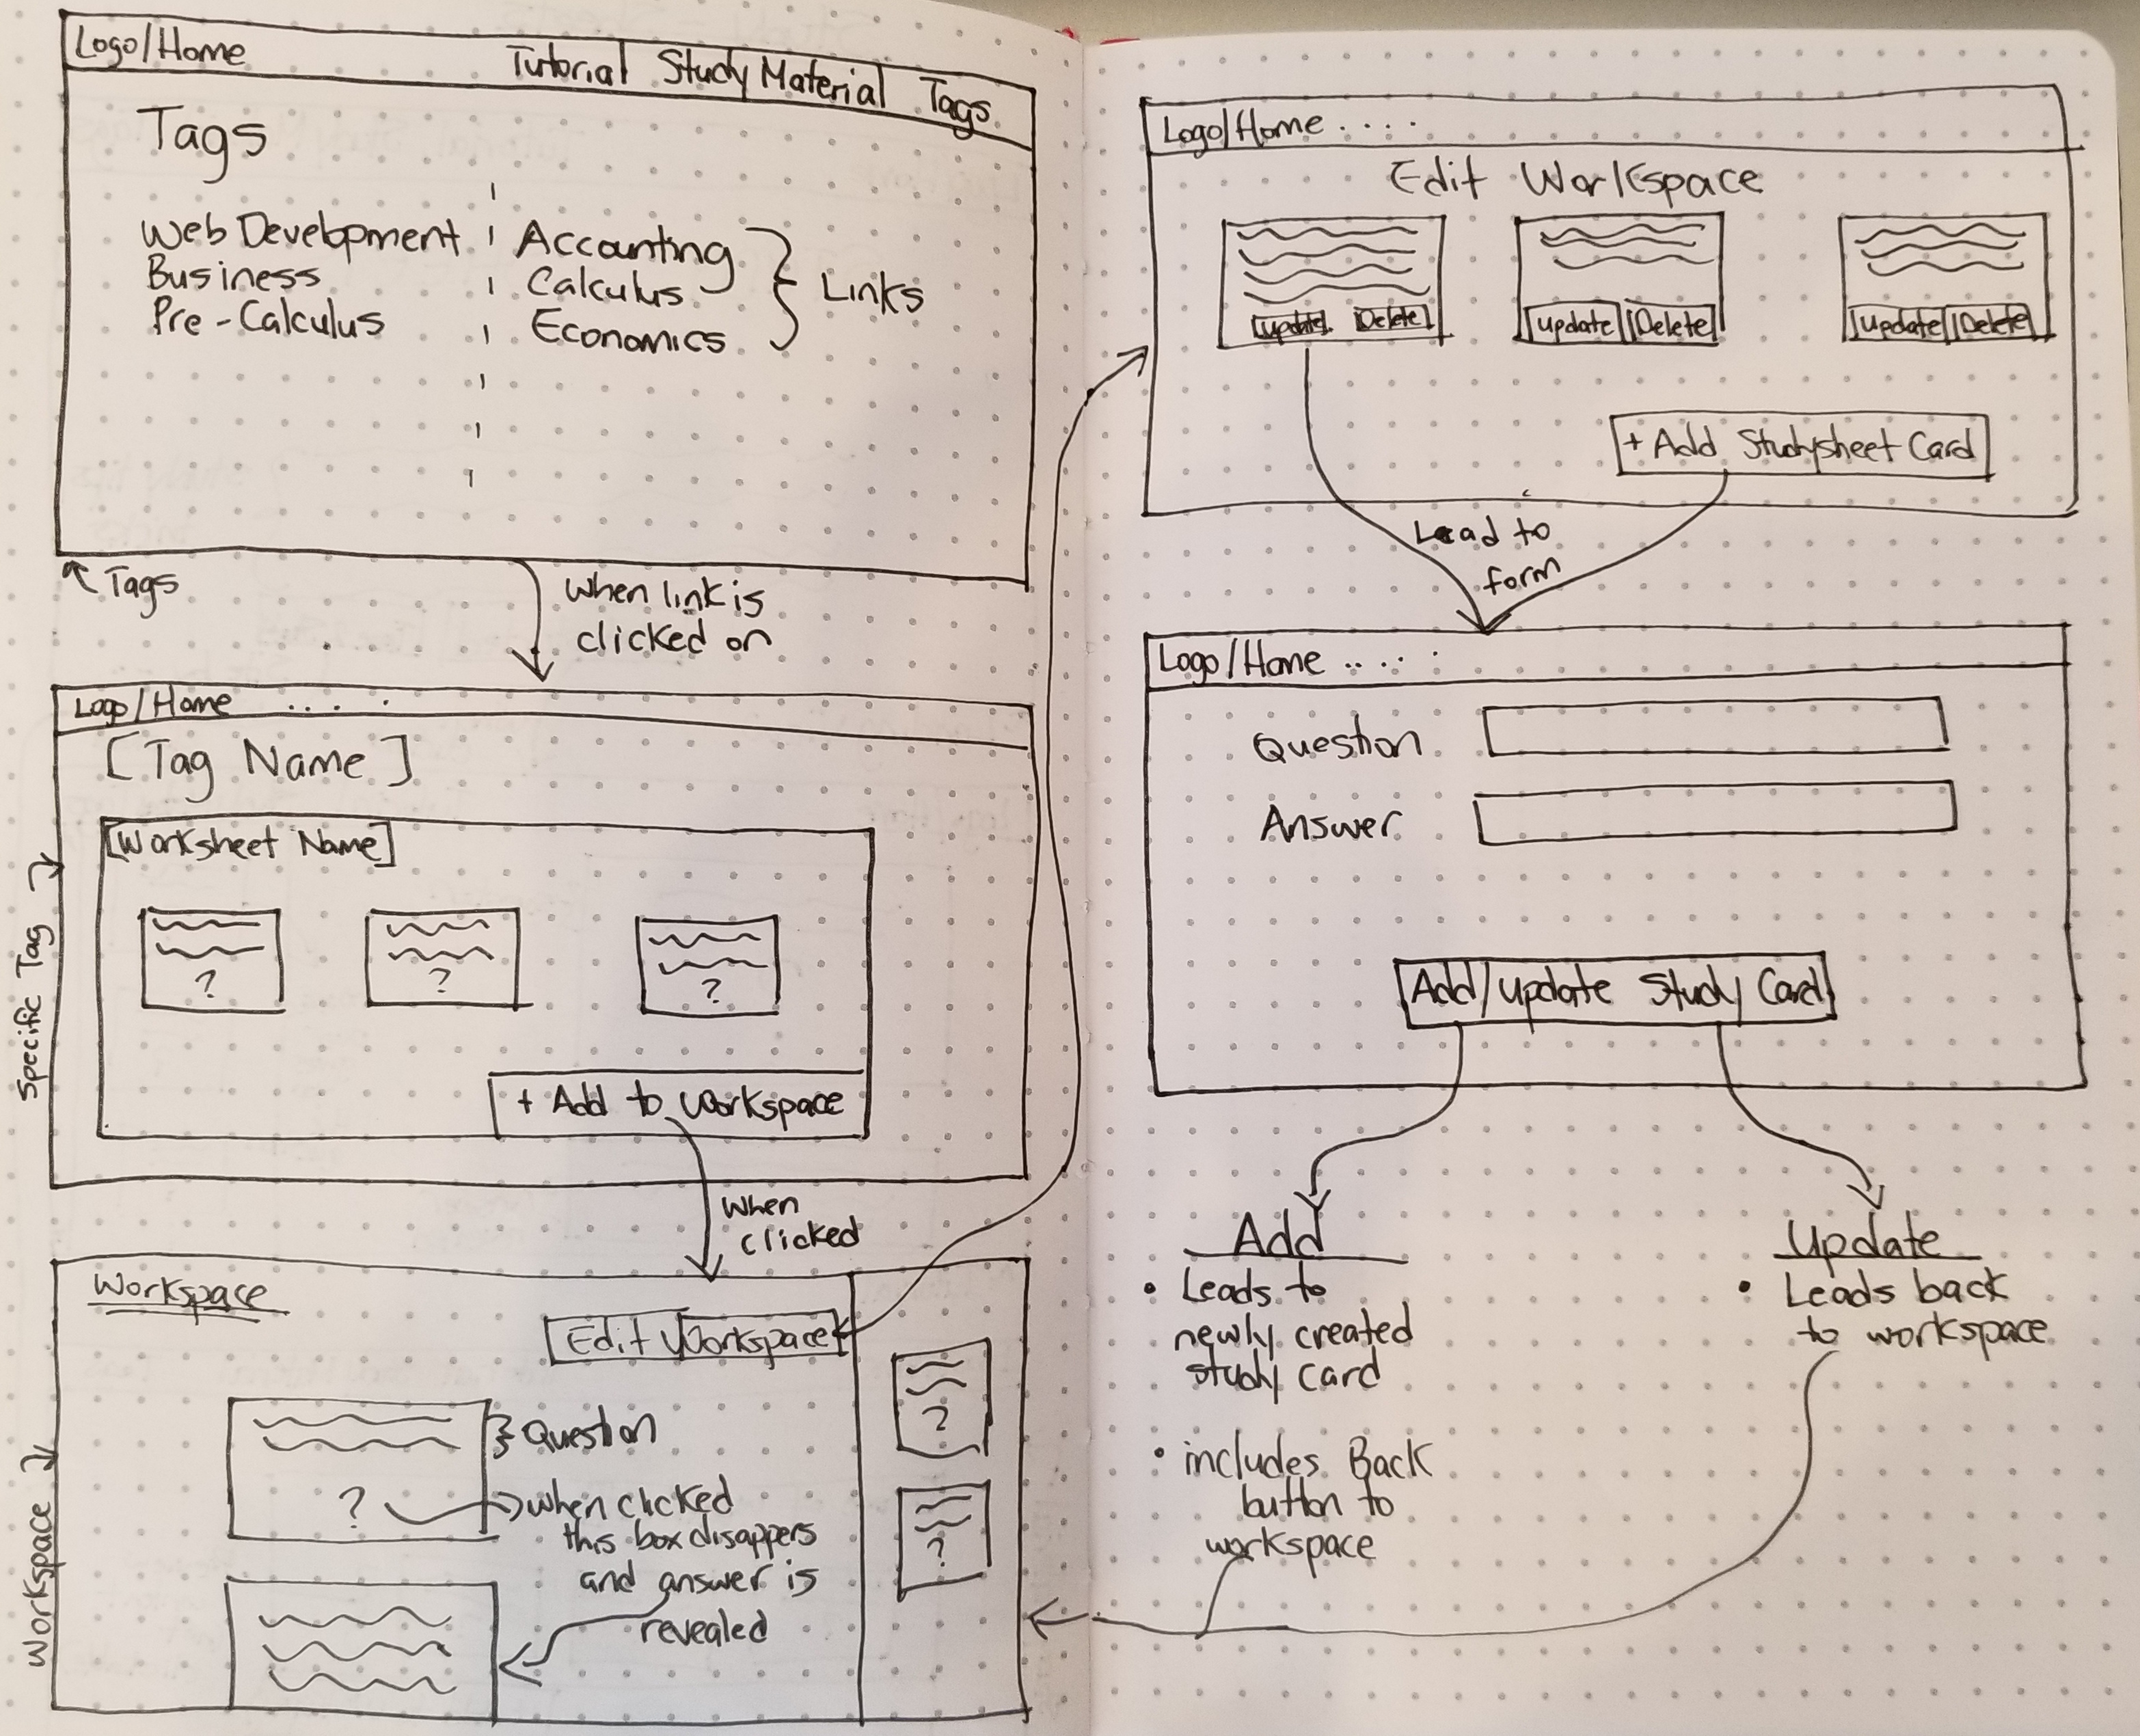 Logo/Home Tutorial Study Material Tags
Tags
Web Development Accounting
Business Calculus Links
Pre-Calculus Economics
Tags
When link is
clicked on
Logo/Home ....
[Tag Name]
[Worksheet Name]
?
?
?
+ Add to Workspace
Specific Tag
When
clicked
Workspace
Edit Workspace
Question
?
when clicked
this box disappers
and answer is
revealed
?
?
Workspace
Logo/Home ....
Edit Workspace
Update Delete
Update Delete
Update Delete
+ Add Studysheet Card
Lead to
form
Logo/Home ....
Question
Answer
Add/Update Study Card
Add
• Leads to
newly created
study card
• includes Back
button to
workspace
Update
• Leads back
to workspace